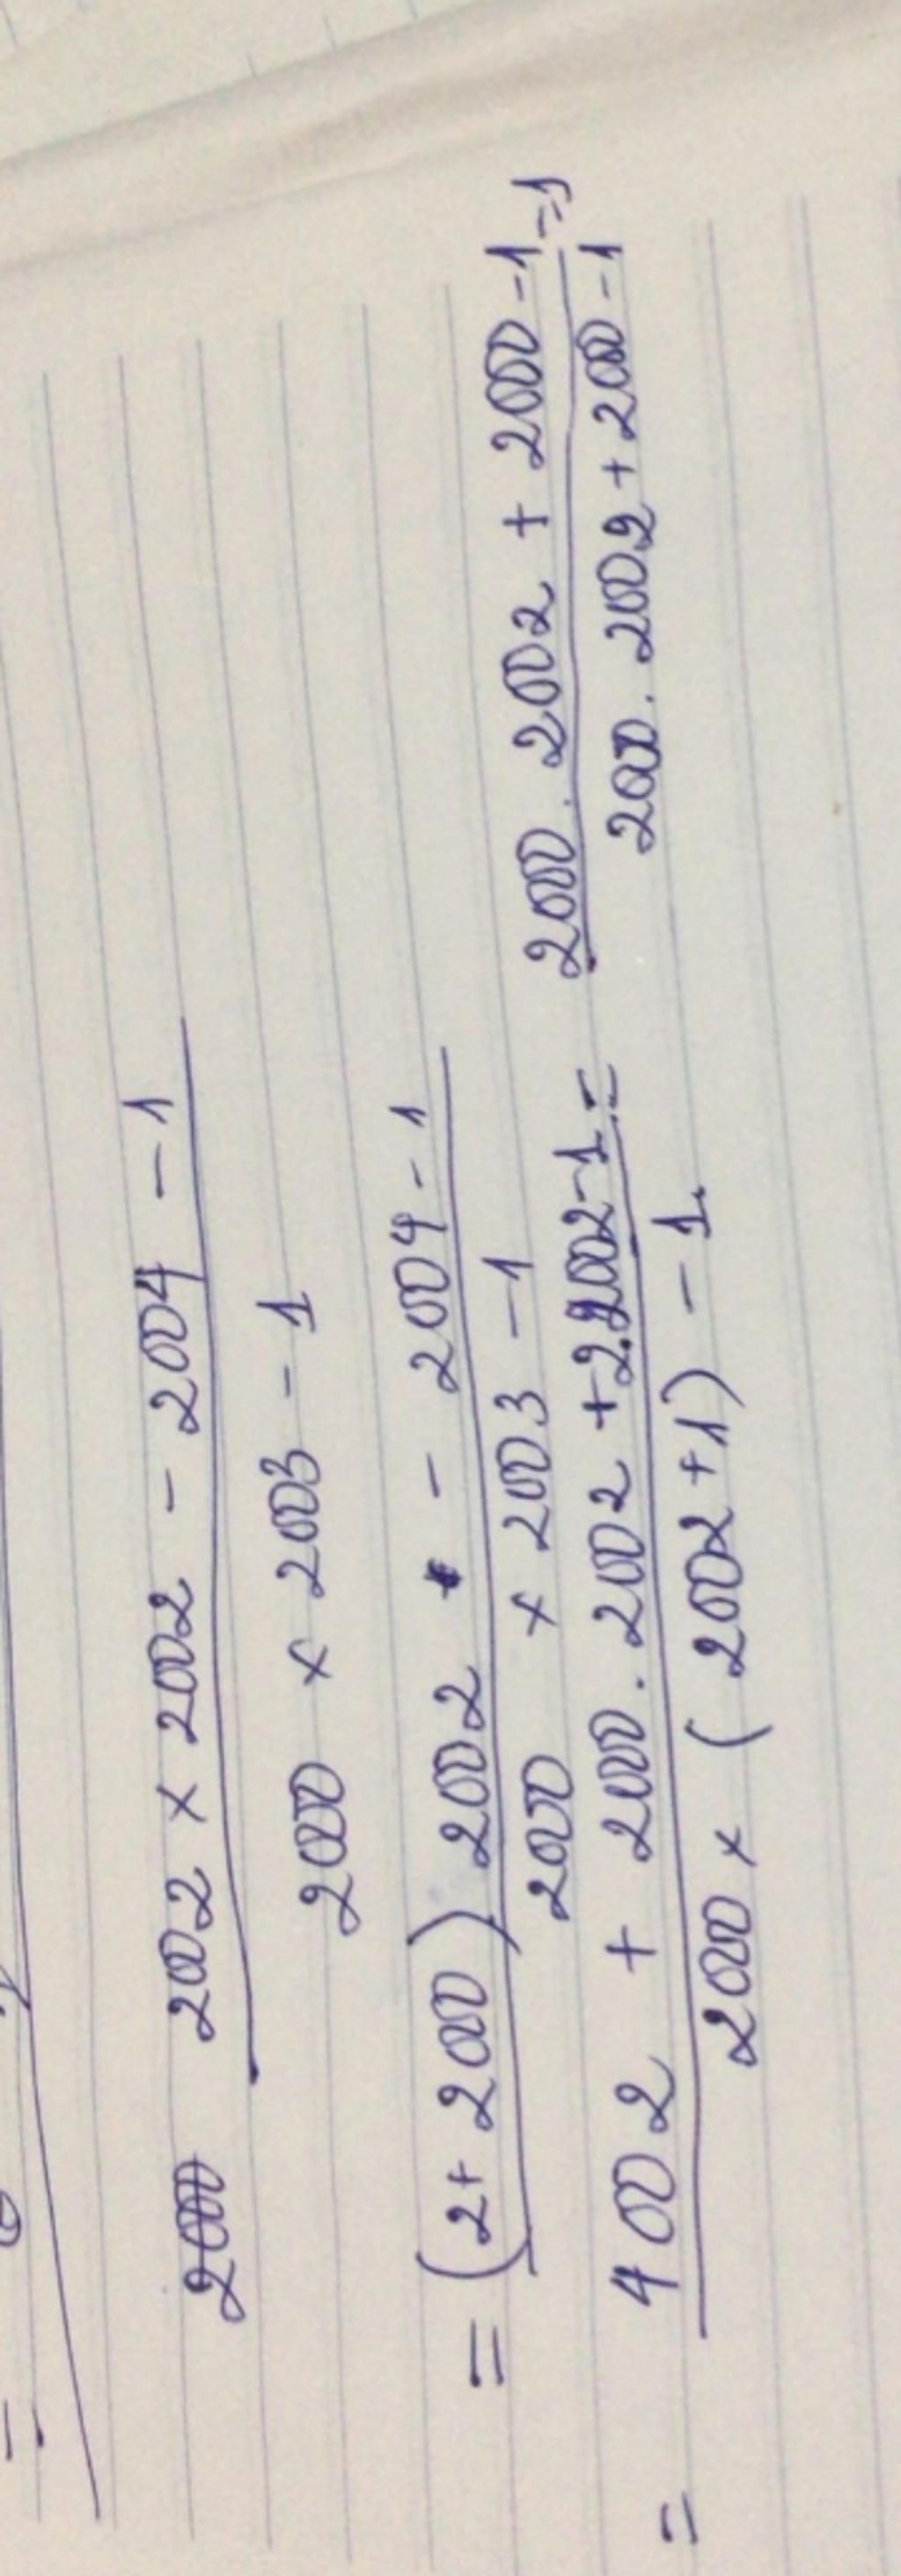 2002 × 2002 - 2004 - 1
2000 × 2003 - 1
= (2 + 2000) 2002 - 2004 - 1
2000 × 2003 - 1
= 4002 + 2000 . 2002 + 2.2002 - 1 = 2000 . 2002 + 2000 - 1 = 1
2000 × (2002 + 1) - 1. 2000 . 2002 + 2000 - 1